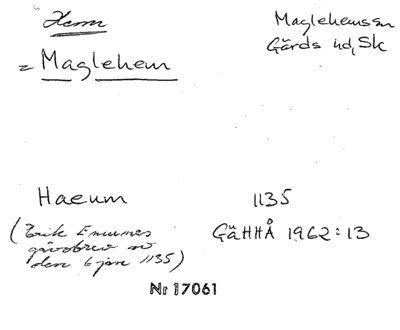 Hem
Maglehemssn
Gärds hd, Sk
= Maglehem
Haeum 1135
(Erik Emunes GäHHÅ 1962:13
gåvobrev av
den 6 jan 1135)
Nr 17061